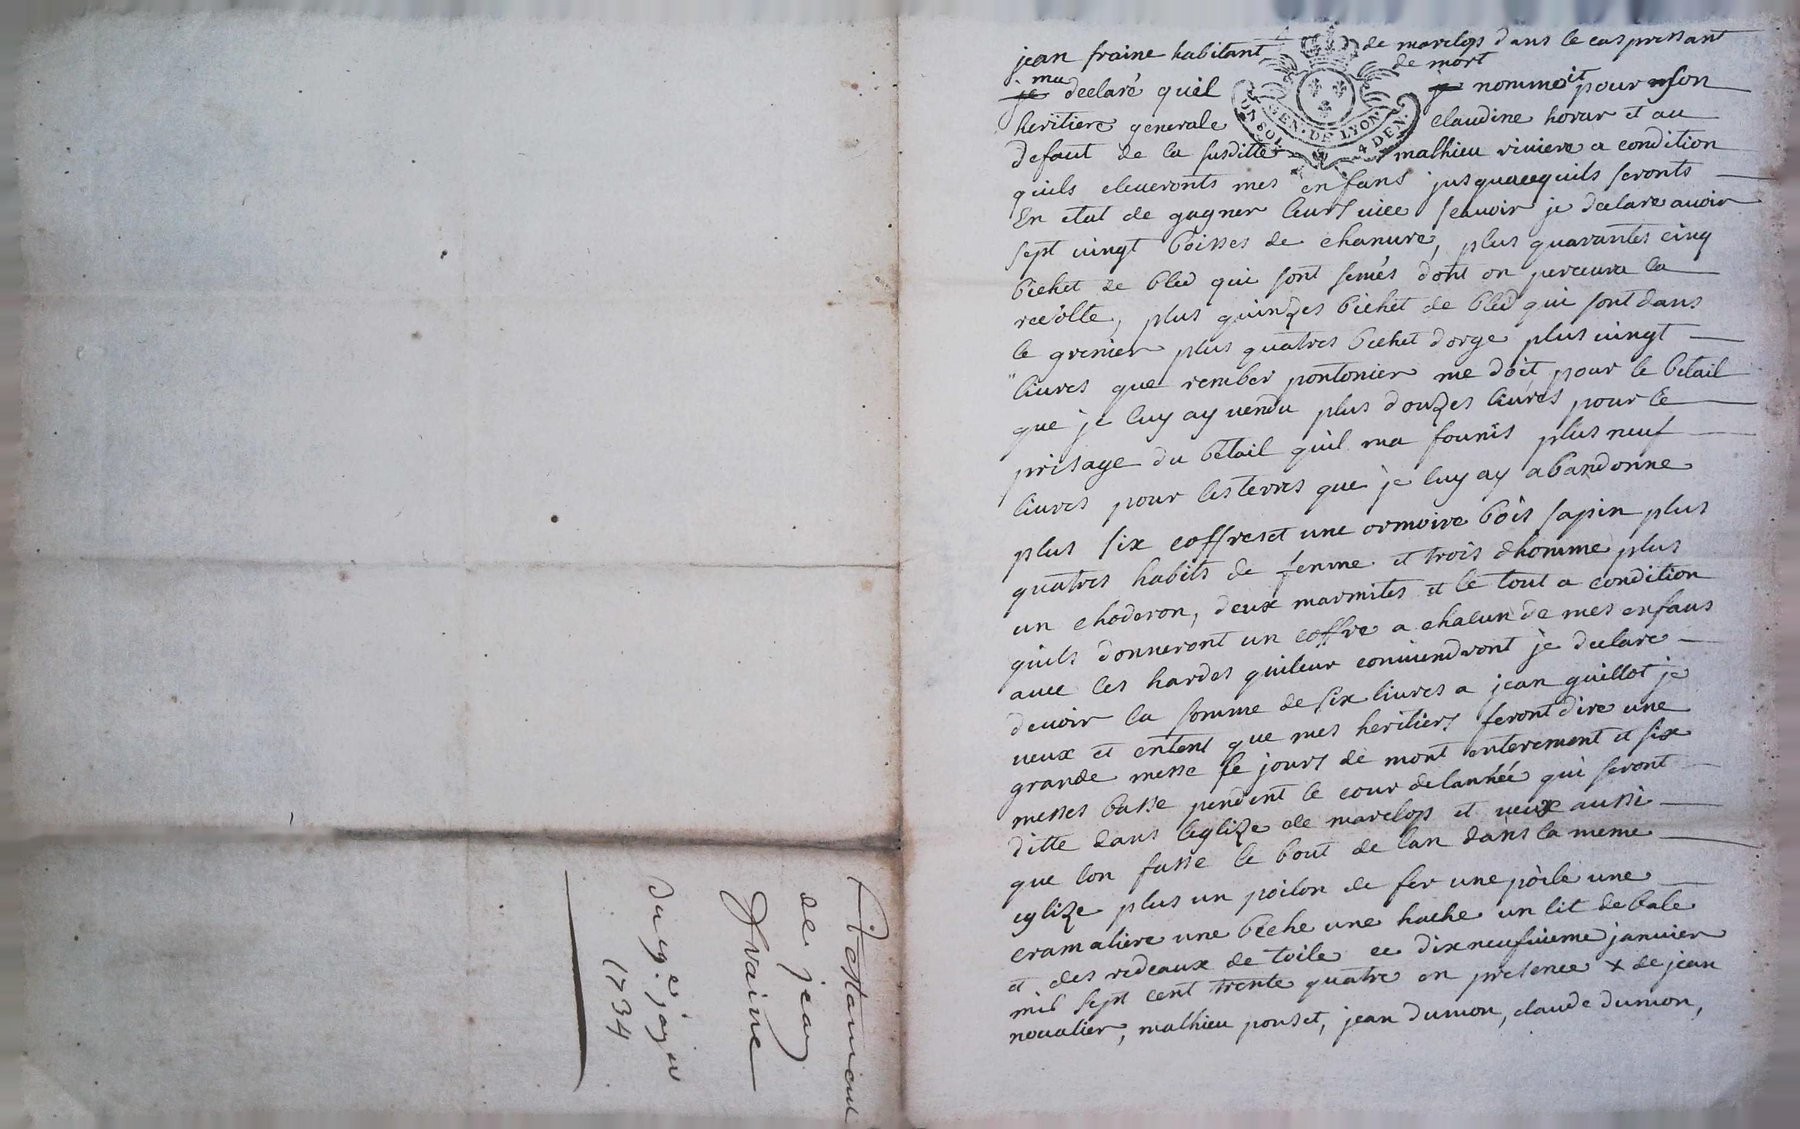 jean fraine habitant de marclop dans le cas pressant
de mort
ma
je declaré quil je nommoit pour son
heritiere generale claudine horar et au
defaut de la susditte mathieu riviere a condition
quils eleveronts mes enfans jusquacequils seronts
En etat de gagner leurs viee scavoir je declare avoir
sept vingt boisses de chanvre, plus quarantes cinq
bichet de bled qui sont semés dont on percevra la
recolte, plus quinzes bichet de bled qui sont dans
le grenier plus quatres bichet dorge plus vingt
livres que rember pontonier me doit pour le betail
que je luy ay vendu plus douzes livres pour le
prisage du betail quil ma founis plus neuf
livres pour les terres que je luy ay abandonne
plus six coffres et une ormoire bois sapin plus
quatres habits de femme et trois dhomme plus
un choderon, deux marmites et le tout a condition
quils donneront un coffre a chacun de mes enfans
avec les hardes quileur conviendront je declare
devoir la somme de six livres a jean guillot je
veux et entent que mes heritiers feront dire une
grande messe le jours de mont enterement et six
messes basse pendent le cour delanneé qui seront
ditte dans leglize de marclop et veux aussi
que lon fasse le bout de lan dans la meme
eglize plus un poilon de fer une poile une
cramaliere une beche une hache un lit de bale
et des rideaux de toile ce dix neufvieme janvier
mil sept cent trente quatre en presence de jean
novalier, mathieu pouset, jean dumon, claude dumon,
GEN. DE LYON
4 DEN.
Testament
de jean
fraine
du 19e janvier
1734